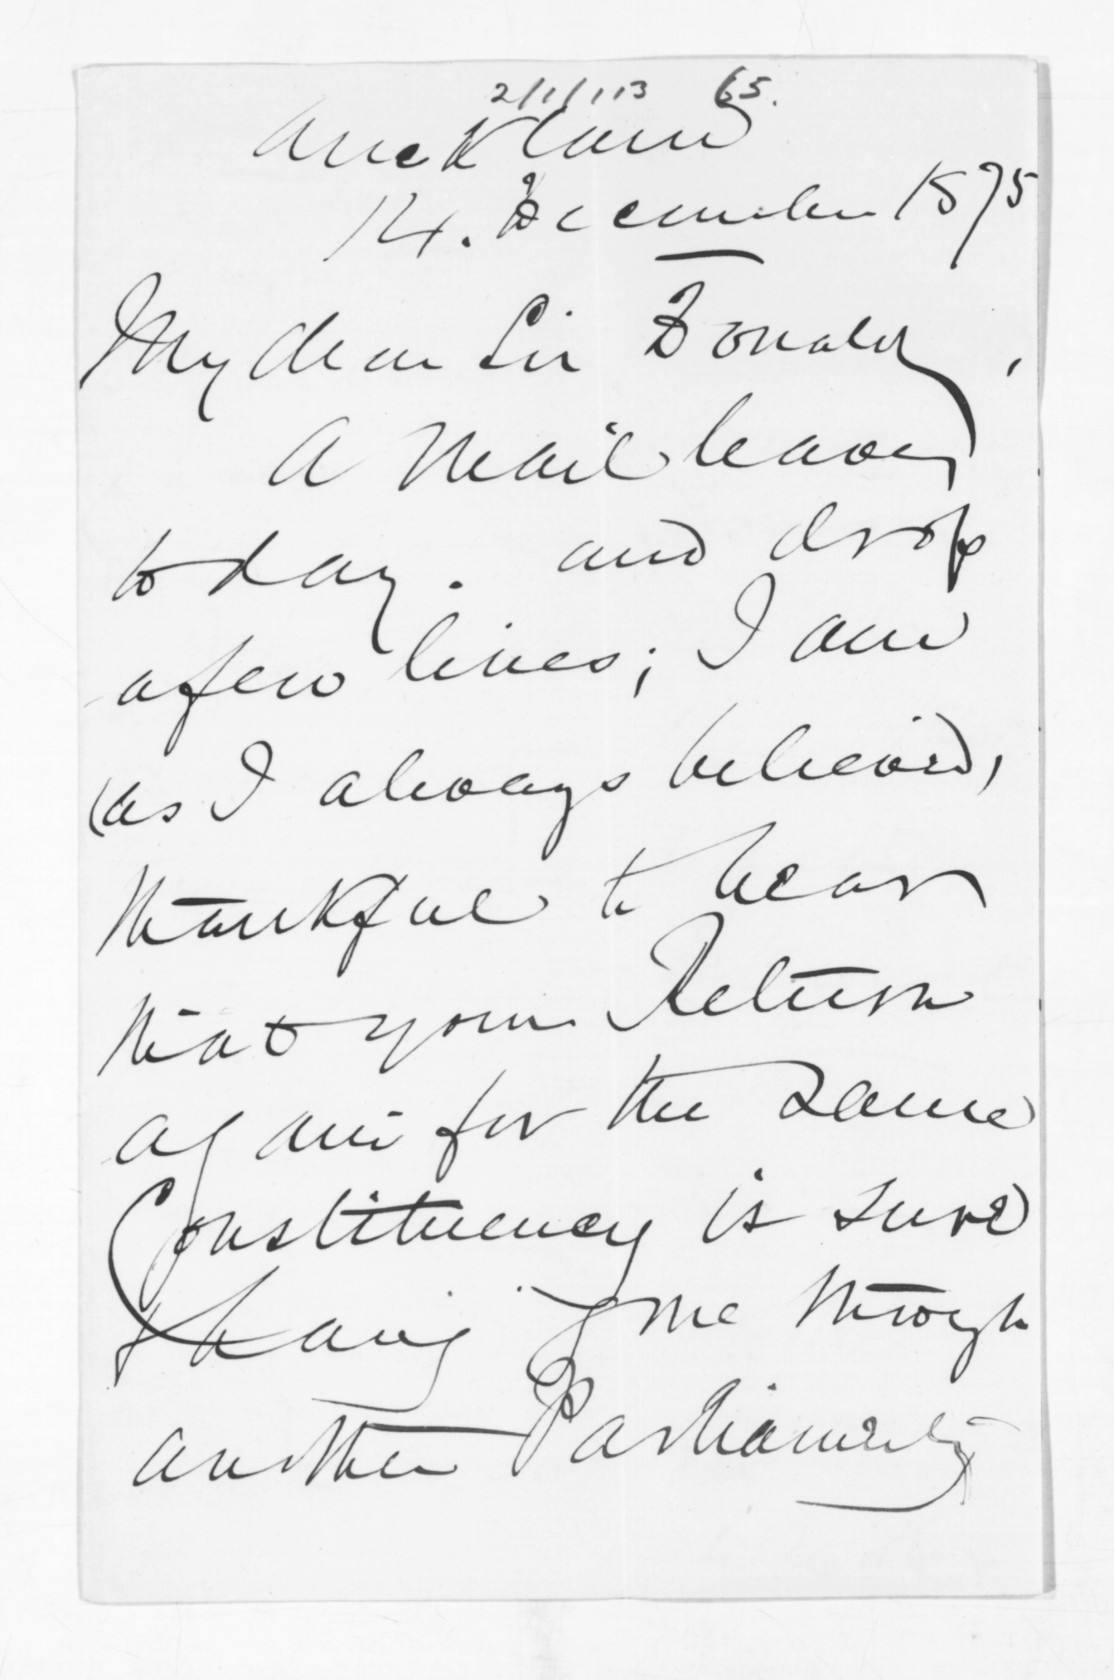 2/1/113 65.
Auckland
14. December 1875
My dear Sir Donald,
A Mail leaves
today. and drop
a few lines; I am
(as I always believed,
thankful to hear
that your Return
again for the same
Constituency is sure
& having gone through
another Parliamenty